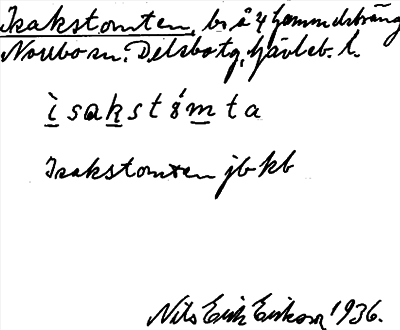 Isakstomten, br å 4 Hammarsträng
Norrbo sn. Delsbo tg, Gävleb. l.
ìsakstómta
Isakstomten jb kb
Nils Erik Erikson 1936.